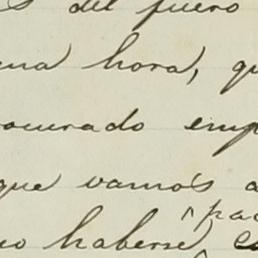 s del fuero
una hora, qu
rocurado emp
que vamos a
pac
no haberse, e